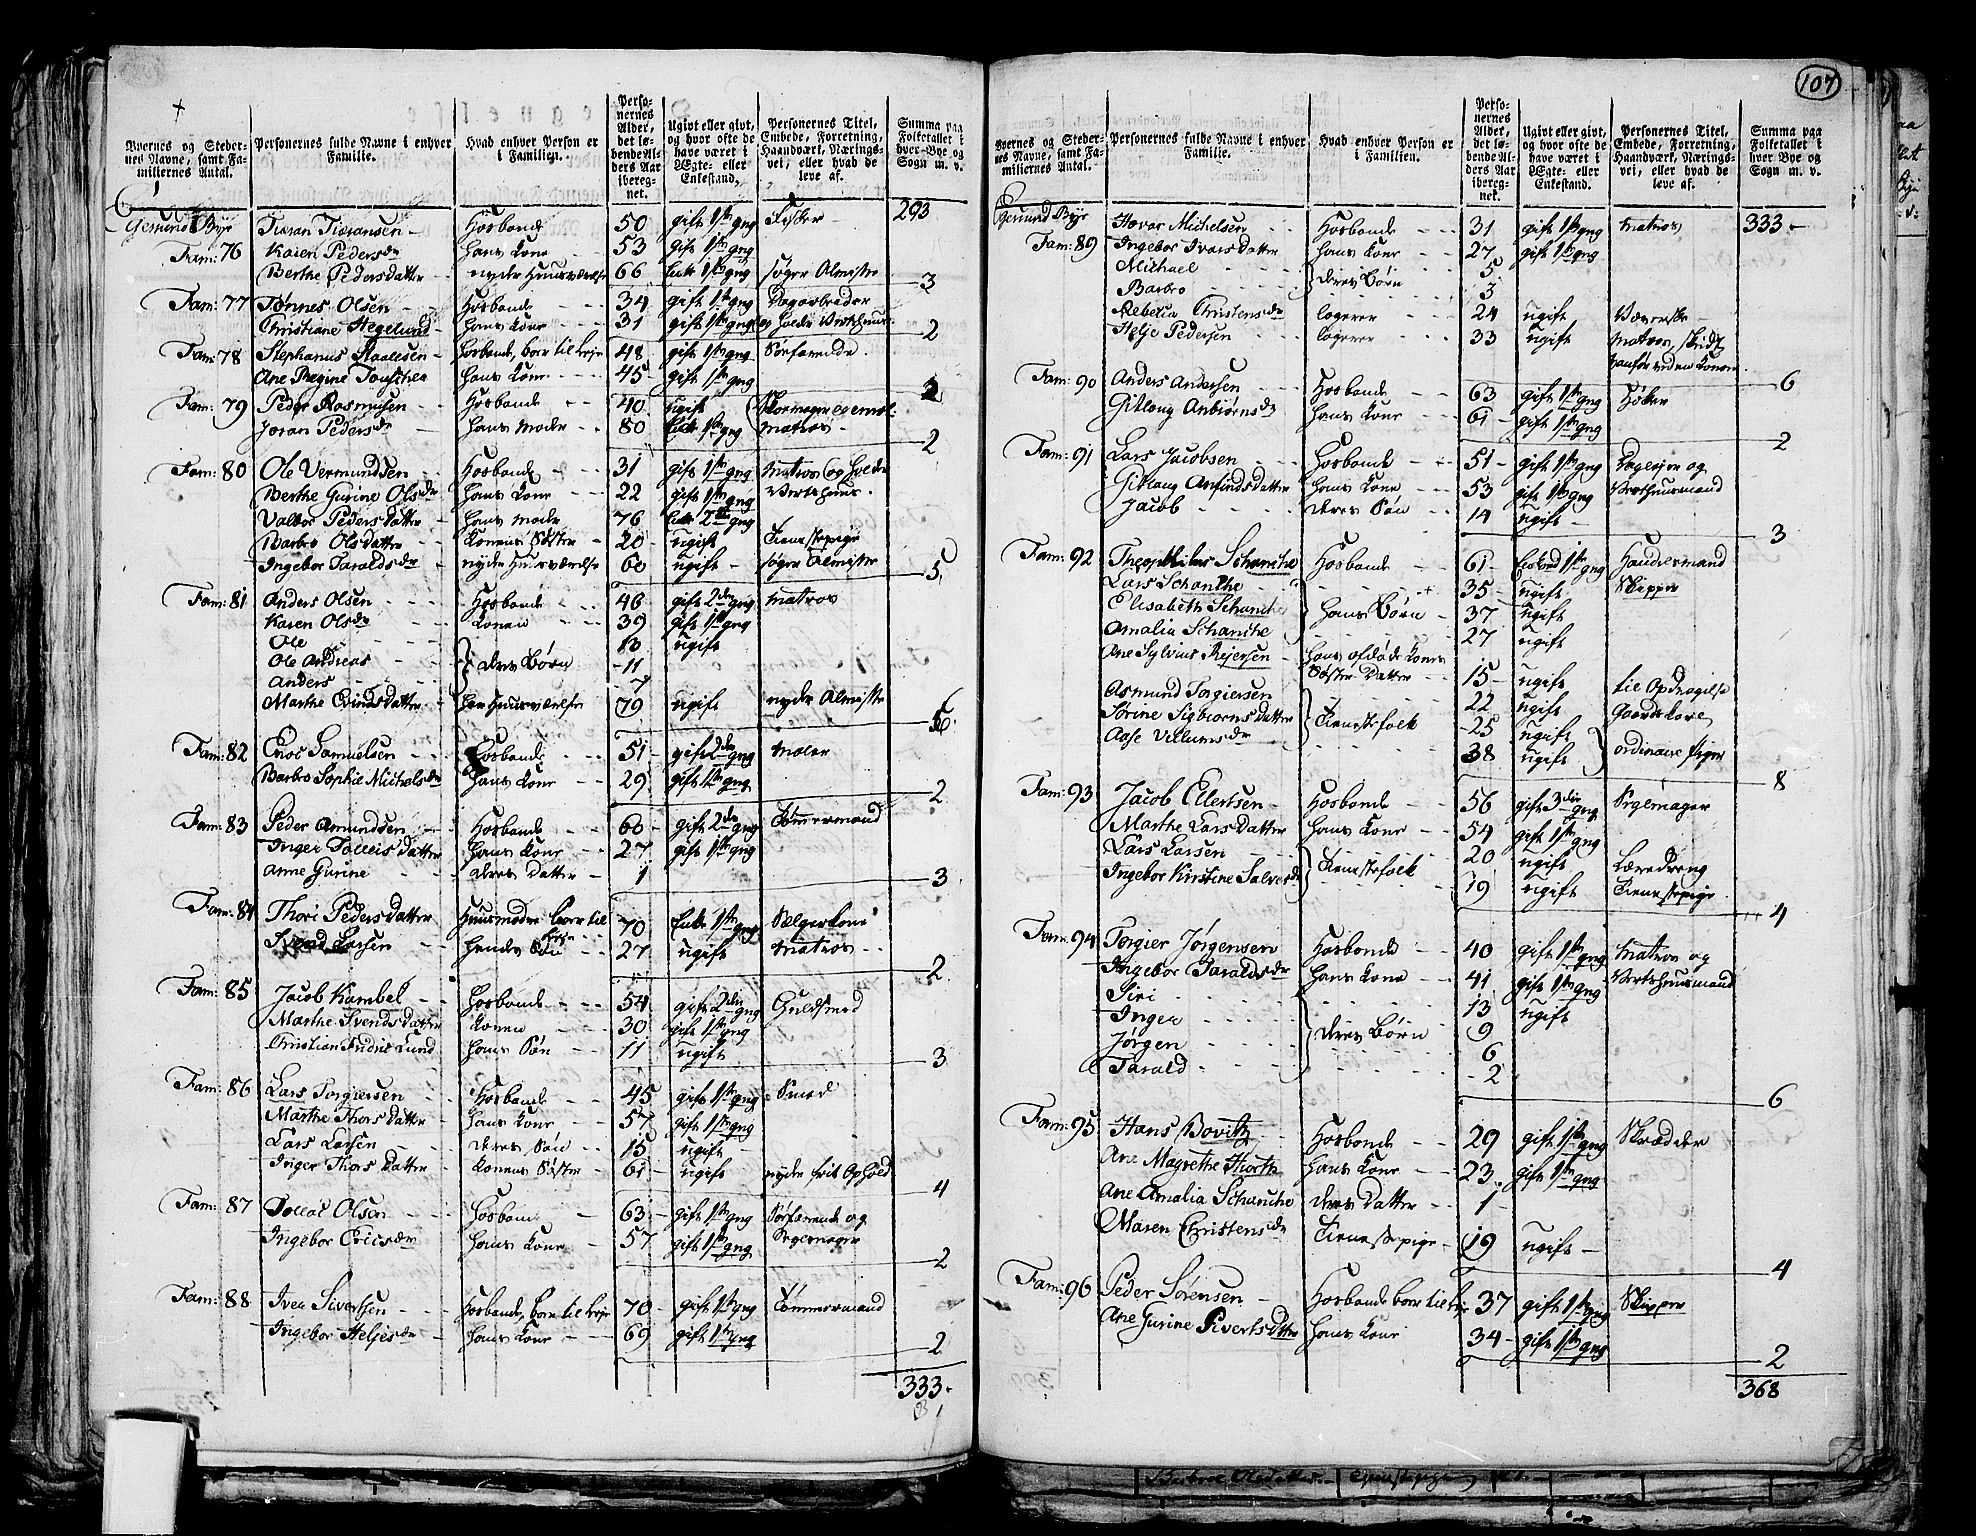 107
Byernes og Steder-nes Navne, samt Fa-miliernes Antal. Personernes fulde Navne i enhver Familie. Hvad enhver Person er i Familien. Perso-nernes Alder, det lø-bende Al-ders Aar iberegnet. Ugivt eller givt, og hvor ofte de have været i Ægte- eller Enkestand. Personernes Titel, Embede, Forretning, Haandværk, Nærings-vei, eller hvad de leve af. Summa paa Folketallet i hver Bye og Sogn m. v.
Byr 293
Hosbonde 50 gift 1ste gng Fisker
Fam: 76 Karen Pedersdr hans Kone 53 gift 1ste gng
Berthe Pedersdatter nyder Huusværelse 66 Enke 1ste gng søger Almisse
3
Fam: 77 Tønnes Olsen Hosbonde 34 gift 1ste gng Dagarbeider
Christiane Hegelund hans Kone 31 gift 1ste gng
2
Fam: 78 Stephanus Staalesen Hosbonde, boer til Leje 48 gift 1ste gng Sørfarende
Ane Regine hans Kone 45 gift 1ste gng
2
Fam: 79 Peder Rasmusen Hosbonde 40 ugift
Joran Pedersdr hans Moder 80 Enke 1ste gng matros
2
Fam: 80 Ole Vermundsen Hosbonde 31 gift 1ste gng matros og holder
Berthe Gurine Olsdr hans Kone 22 gift 1ste gng Vertshuus
Valbor Pedersdatter hans Moder 76 Enke 2den gng
Barbro Olsdatter Konens Søster 20 ugift Tienestepige
Ingebor Taraldsdr nyder Huusværelse 60 ugift søger Almisse
5
Fam: 81 Anders Olsen Hosbonde 46 gift 2den gng matros
Karen Olsdr Konen 39 gift 1ste gng
Ole 13 ugift
Ole Andreas deres Børn 11
Anders 7
Marthe Evindsdatter har Huusværelse 79 ugift nyder Almisse
6
Fam: 82 Enoc Samuelsen Hosbonde 51 gift 2den gng maler
Barbro Sophie Michelsdr hans Kone 29 gift 1ste gng
2
Fam: 83 Peder Amundsen Hosbonde 60 gift 2den gng Tømmermand
Inger Tolleisdatter hans Kone 27 gift 1ste gng
Anne Gurine deres Datter 1
3
Fam: 84 Thori Pedersdatter Huusmoder boer til leje 70 Enke 1ste gng
Svend Larsen hendes Søn 27 ugift matros
2
Fam: 85 Jacob Kambel Hosbonde 54 gift 2den gng Guldsmed
Marthe Svendsdatter Konen 30 gift 1ste gng
Christian Fridric Lund hans Søn 11 ugift
3
Fam: 86 Lars Torgiersen Hosbonde 45 gift 1ste gng Smed
Marthe Thorsdatter hans Kone 57 gift 1ste gng
Lars Larsen deres Søn 15 ugift
Inger Thorsdatter Konens Søster 61 ugift nyder frit Ophold
4
Fam: 87 Olsen Hosbond 63 gift 1ste gng Sørfarende og
Ingebor Ericsdr hans Kone 57 gift 1ste gng Segemager
2
Fam: 88 Iver Sivertsen Hosbonde, boer til Leje 70 gift 1ste gng Tømmermand
Ingebor Heljesdr hans Kone 69 gift 1ste gng
2
333
Byernes og Steder-nes Navne, samt Fa-miliernes Antal. Personernes fulde Navne i enhver Familie. Hvad enhver Person er i Familien. Perso-nernes Alder, det lø-bende Al-ders Aar iberegnet. Ugivt eller givt, og hvor ofte de have været i Ægte- eller Enkestand. Personernes Titel, Embede, Forretning, Haandværk, Nærings-vei, eller hvad de leve af. Summa paa Folketallet i hver Bye og Sogn m. v.
Bye Havor Michelsen Hosbonde 31 gift 1ste gng matros 333
Fam: 89 Ingebor Ivarsdatter hans Kone 27 gift 1ste gng
Michael 5
Barbro deres Børn 3
Rebecca Christensdr logerer 24 ugift Væverske
Helje Pedersen logerer 33 ugift matros
6
Fam: 90 Anders Andersen Hosbonde 63 gift 1ste gng Høker
Gitloug Anbiørnsdr hans Kone 61 gift 1ste gng
2
Fam: 91 Lars Jacobsen Hosbonde 51 gift 1ste gng og
Gitloug Amundsdatter hans Kone 53 gift 1ste gng Vertshuusmand
Jacob deres Søn 14 ugift
3
Fam: 92 Theophilus Schanche Hosbonde 61 1ste gng Handelsmand
Lars Schanche 35 ugift Skipper
Elisabeth Schanche hans Børn 37 ugift
Amalia Schanche 27 ugift
Ane Sylvius Rejersen hans afdøde Kones
Søster Datter 15 ugift til Opdragelse
Asmund Torgiersen 22 ugift Gaardskarl
Sørine Sigbiornsdatter Tienestefolk 25 ugift
Aase Villumsdr 38 ugift ordinaire piger
8
Fam: 93 Jacob Ellertsen Hosbonde 56 gift 3die gng Segemager
Marthe Larsdatter hans Kone 54 gift 1ste gng
Lars Larsen 20 ugift Læredreng
Ingebor Kirstine Salvesdr Tienestefolk 19 ugift Tienestepige
4
Fam: 94 Torgier Jørgensen Hosbonde 40 gift 1ste gng matros og
Ingebor Taraldsdr hans Kone 41 gift 1ste gng Vertshuusmand
Siri 13 ugift
Inger deres Børn 9
Jørgen 6
Tarald 2
6
Fam: 95 Hans Bovitz Hosbonde 29 gift 1ste gng Skrædder
Ane Magrethe hans Kone 23 gift 1ste gng
Ane Amalia Schanche deres Datter 1
Maren Christensdr Tienestepige 19 ugift
4
Fam: 96 Peder Sørensen Hosbonde boer til Leje 37 gift 1ste gng Skipper
Ane Gurine Sivertsdatter hans Kone 34 gift 1ste gng
2
368